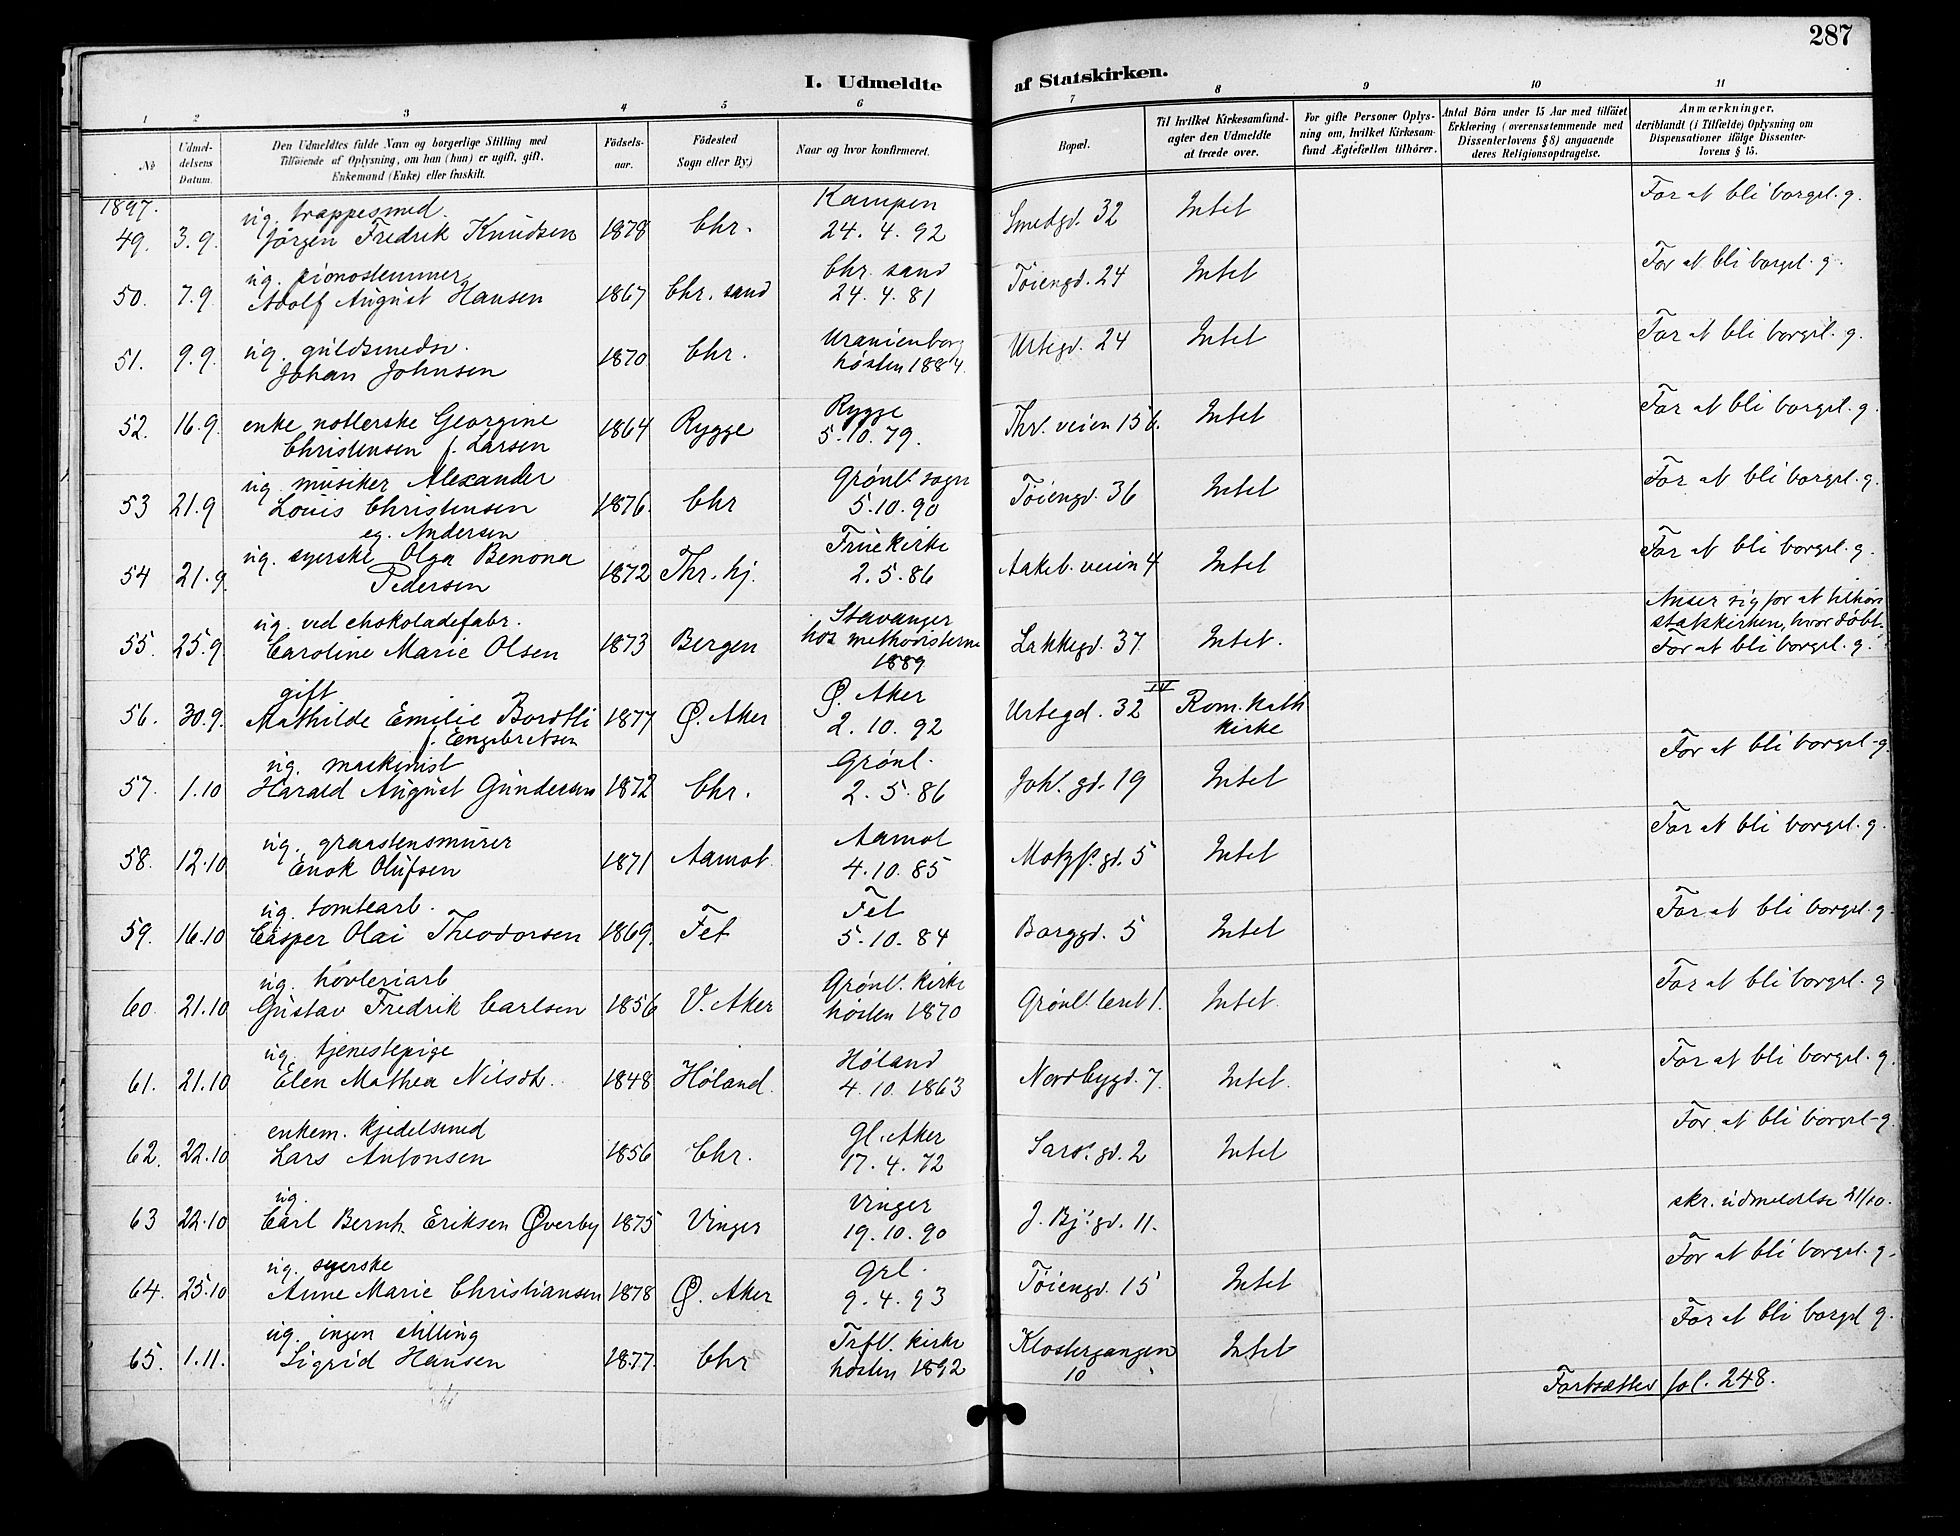 287
I. Udmeldte af Statskirken.
1 2 3 4 5 6 7 8 9 10 11
No
Udmeldelsens Datum.
Den Udmeldtes fulde Navn og borgerlige Stilling med
Tilføiende af Oplysning, om han (hun) er ugift, gift.
Enkemand (Enke) eller fraskilt.
Fødselsaar.
Fødested
Sogn eller By)
Naar og hvor konfirmeret.
Bopæl.
Til hvilket Kirkesamfund-
agter den Udmeldte
at træde over.
For gifte Personer Oplys-
ning om, hvilket Kirkesam-
fund Ægtefællen tilhører.
Antal Börn under 15 Aar med tilføiet
Erklæring (overensstemmende med
Dissenterlovens § 8) angaaende
deres Religionsopdragelse.
Anmærkninger,
deriblandt (i Tilfælde) Oplysning om
Dispensationer ifølge Dissenter-
lovens § 15.
1897.
ug. trappesmed. Kampen For at bli borgel. g.
49. 3.9. Jørgen Fredrik Knudsen 1878 Chr. 24. 4. 92 Smedgd. 32 Intet
ug. pionostemmer Chr. sand For at bli borgel. g.
50. 7.9. Adolf August Hansen 1867 Chr. sand 24. 4. 81 Tøiengd. 24 Intet
ug. guldsmedsv. Uranienborg For at bli borgel. g.
51. 9.9. Johan Johnsen 1870 Chr. høsten 1884. Urtegd. 24 Intet
52. 16.9. enke Georgine 1864 Rygge Rygge Thv. veien 15 b. Intet For at bli borgel. g.
Christensen f. Larsen 5.10.79.
ug. musiker Alexander Grønl. sogn For at bli borgel. g.
53 21.9 Louis Christensen 1876. Chr 5.10.90 Tøiengd. 36 Intet
eg. Andersen
ug. syerske Olga Benona Fruekirke For at bli borgel. g.
54 21.9. Pedersen 1872 Thr. hj. 2.5.86 Aakeb. veien 4 Intet
ug. ved chokoladefabr. Stavanger Anser sig for at tilhøre
55. 25.9 Caroline Marie Olsen 1873 Bergen hos methodisterne Lakkegd. 37 Intet. statskirken, hvor døbt.
1889 For at bli borgel. g.
gift Ø. Aker
56. 30.9. Mathilde Emilie Bordtli 1877 Ø. Aker 2.10.92 Urtegd. 32 IV Rom. Kath
f. Engebretsen kirke
ug. maskinist Grønl. For at bli borgel. g.
57. 1.10 Harald August Gundersen 1872 Chr. 2.5.86 Joh. gd. 19 Intet
ug. graastensmurer Aamot For at bli borgel. g.
58. 12.10 Enok Olufsen 1871 Aamot. 4.10.85 Motzf. gd. 5 Intet
ug. tomtearb. Fet For at bli borgel. g.
59. 16.10 Casper Olai Theodorsen 1869. Fet 5.10.84 Borggd. 5 Intet
ug. høvleriarb Grønl. kirke For at bli borgel. g.
60. 21.10 Gustav Fredrik Carlsen 1856 V. Aker høsten 1870 Grønl. leret 1. Intet.
ug. tjenestepige Høland For at bli borgel. g.
61. 21.10 Elen Mathea Nilsdt. 1848 Høland. 4.10.1863 Nordbygd. 7. Intet.
enkem. kjedelsmed Gl. Aker For at bli borgel. g.
62. 22.10 Lars Antonsen 1856 Chr. 17.4.72 Sars. gd. 2 Intet
ug. Vinger skr. udmeldelse 21/10.
63 22.10 Carl Bernh. Eriksen Øverby 1875 Vinger 19.10.90 J. Bj. gd. 11.
ug. syerske Grl. For at bli borgel. g.
64. 25.10 Anne Marie Christiansen 1878 Ø. Aker 9.4.93 Tøiengd. 15 Intet
ug. ingen stilling Trefl. kirke For at bli borgel g.
65. 1.11. Sigrid Hansen 1877. Chr høsten 1892 Klostergangen Intet
10
Fortsættes fol. 248.